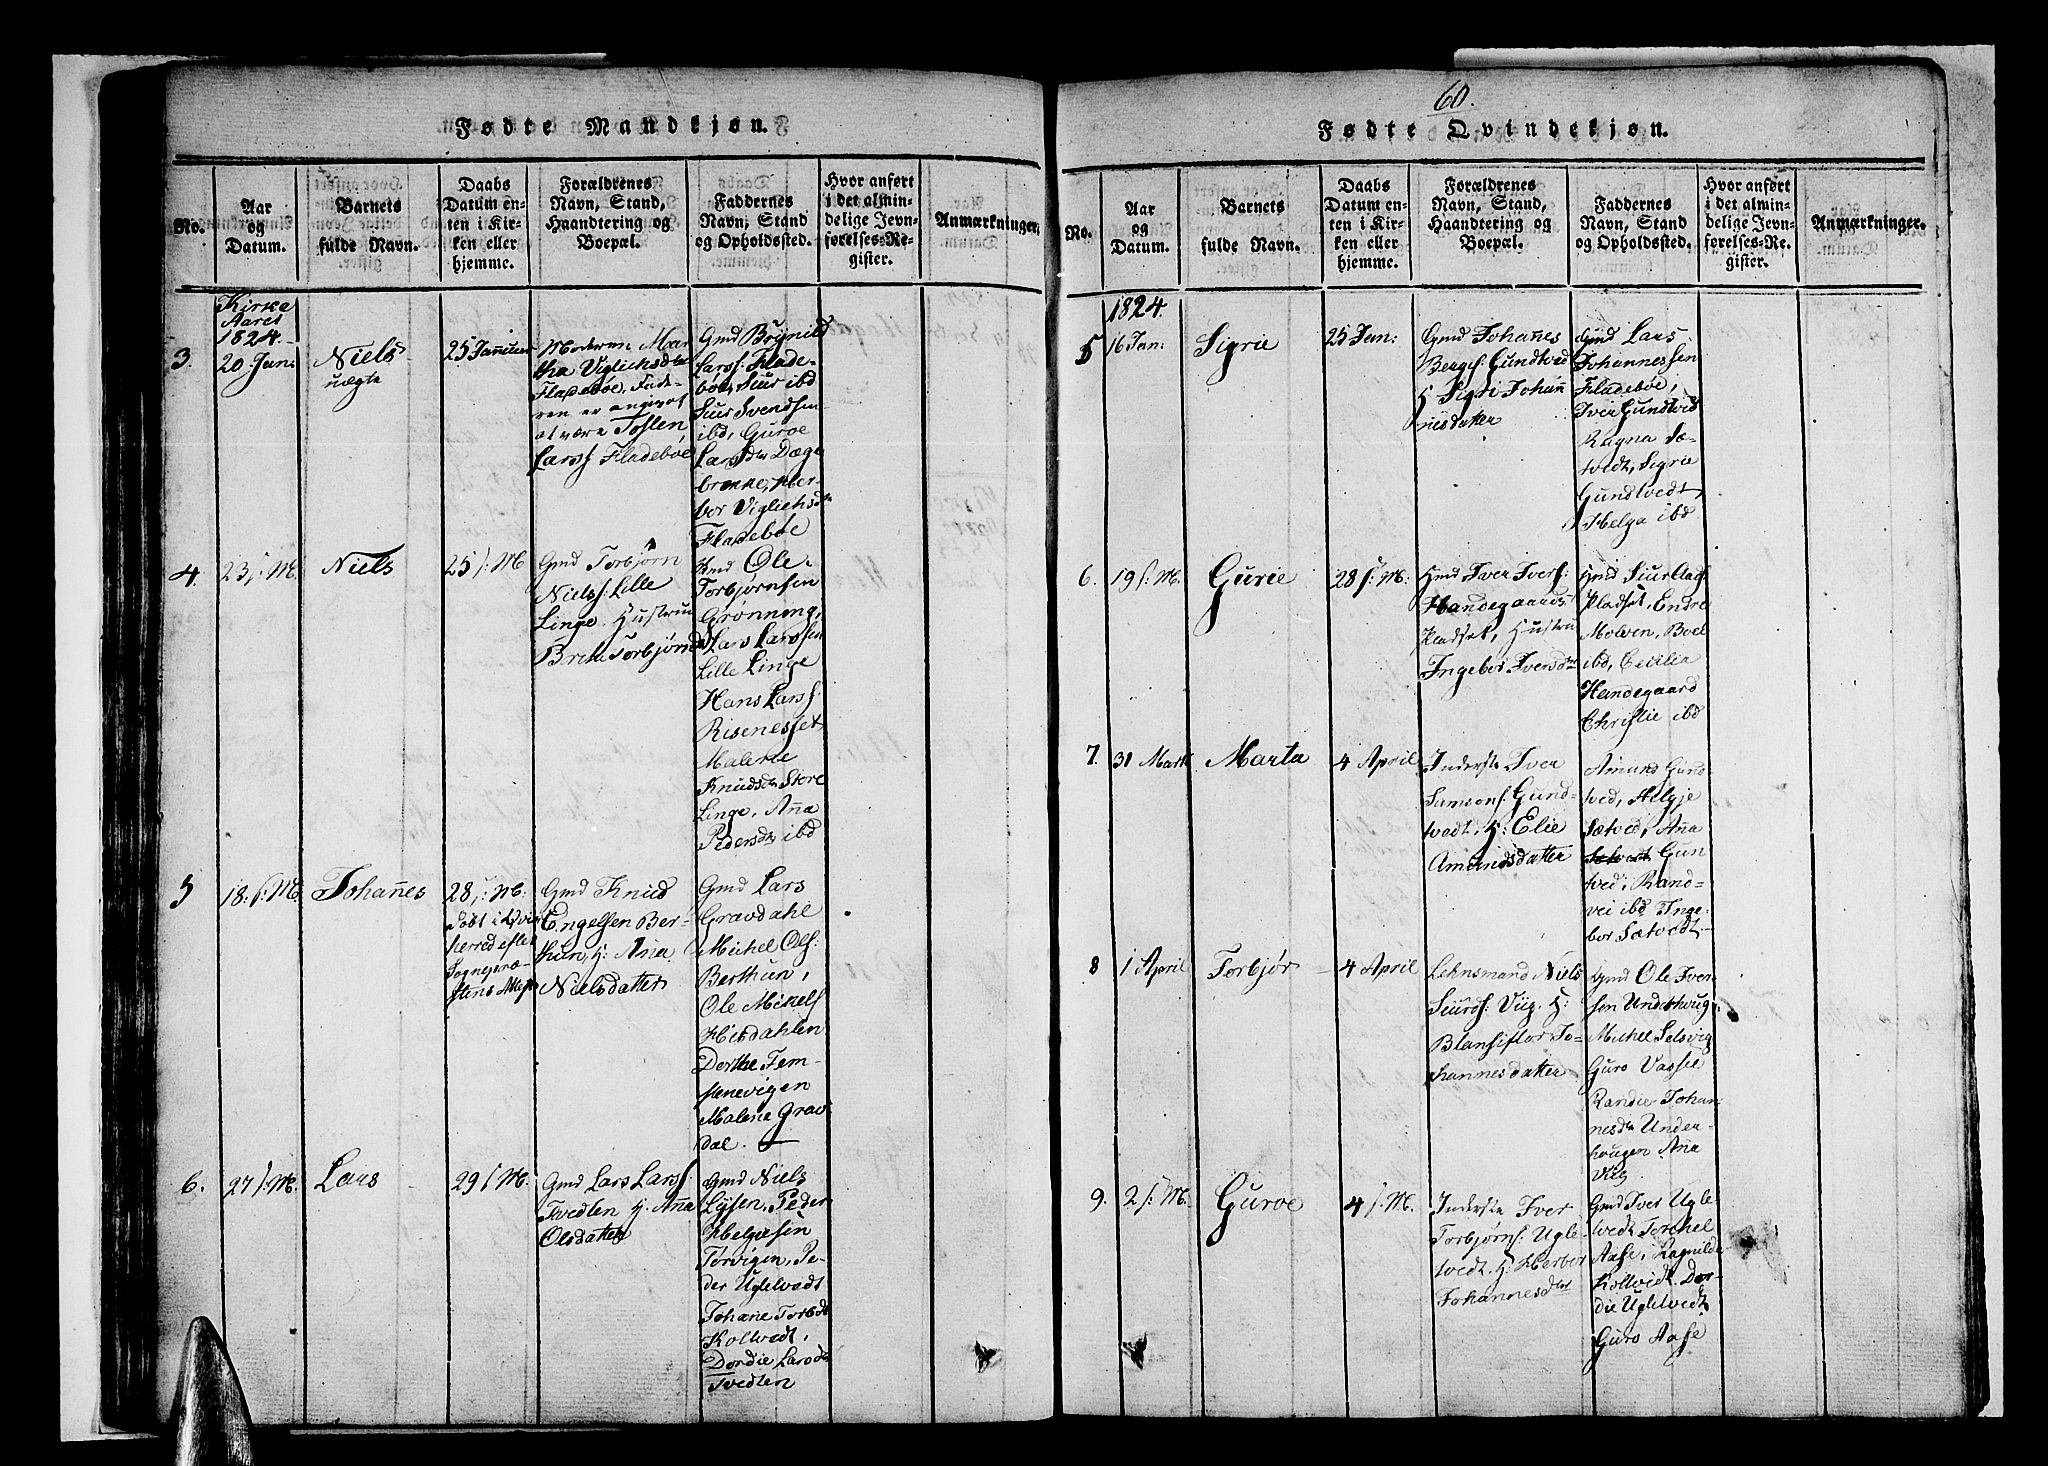 Fødte Mandkjøn.
No.
Aar
og
Datum.
Barnets
fulde Navn.
Daabs
Datum en-
ten i Kir-
ken eller
hjemme.
Forældrenes
Navn, Stand,
Haandtering og
Boepæl.
Faddernes
Navn, Stand
og Opholdssted.
Hvor anført
i det almin-
delige Jevn-
førelses-Re-
gister.
Anmærkninger.
Kirke
Aaret
1824
3.
20 Jan:
Niels
uægte
25 Januari
Moderen Mar
tha Viglichsdtr
Fladebøe, Fade-
ren er angivet
at være Tosten
Larss Fladebøe
Gmd Brynild
Larss: Flade-
bøe, Siur ibd
Siur Svendsen
ibd, Guroe
Larsdtr Dæge
brekke, Her-
bor Viglichsdtr
Fladebøe
4.
23 /: M.
Niels
25 /: M
Gmd Torbjørn
Nielss: Lille
Linge, Hustru
Brita Torbjørnsd
Gmd Ole
Torbjørnsen
Grønning,
Lars Larssen
Lille Linge
Hans Larss
Risenesset
Malene
Knudsdtr Store
Linge, Aña
Pedersdtr ibd
5
18 /: M.
Johañes
28 /: M.
døbt i
herred efter
Sognepræ-
stens
Gmd Knud
Engelsen Ber-
thun, H: Aña
Nielsdatter
Gmd Lars
Gravdahl
Michel Ols:
Berthun,
Ole Mikels
Hisdahlen
Dorthe Fem-
stenevigen
Malene Grav
dal.
6.
27 /: M.
Lars
29 /: M.
Gmd Lars Larss
Tvedten H: Aña
Olsdatter
Gmd Niels
Peder
Helgesen
Tørvigen, Pe-
der Uglevedt
Johane Torbd
Koltvedt,
Dordie Larsdtr
Tvedten
60.
Fødte Qvindekjøn.
No.
Aar
og
Datum.
Barnets
fulde Navn.
Daabs
Datum en-
ten i Kir-
ken eller
hjemme.
Forældrenes
Navn, Stand,
Haandtering og
Boepæl.
Faddernes
Navn, Stand
og Opholdssted.
Hvor anført
i det almin-
delige Jevn-
førelses-Re-
gister.
Anmærkninger.
1824.
5
16 Jan:
Sigrie
25 Jan:
Gmd Johañes
Bergs: Gundtved
H Sigri Johañ
nesdatter
Gmd Lars
Johannessen
Fladebøe,
Iver Gundtvid
Ragna Sæ-
tvedt, Sigrie
Gundtvedt
Helga ibd
6.
19 /: M.
Gurie
28 /: M:
Hmd Iver Ivers:
Handegaards
Pladset, Hustru
Ingebor Iversdtr
Hmd Siur Aag
Pladset, Endre
Molven, Boel
ibd, Cecilia
Handegaard
Christie ibd
7.
31 Marti
Marta
4 April
Inderste Iver
Samsons: Gund-
tvedt, H: Elie
Amundsdatter
Amund Gund-
tved, Helgje
Sætved, Aña
Sætvedt Gun
tved, Rand-
vei ibd Inge-
bor Sætvedt
8
1 April
Torbjør
4 April
Lehnsmand Niels
Siurds: Viig H:
Blansiflor Jo-
hannesdatter
Gmd Ole Iver-
sen Underhoug
Michel Selsvig
Guro Vassel
Randie Johan
nesdtr Under-
hougen Ana
Viig
9.
2 /: M.
Guroe
4 /: M.
Inderste Iver
Torbjørns: Ugle-
tvedt, H: Herbor
Johannesdtr
Gmd Iver Ugle
tvedt Torchel
Aase, Ragnilda
Koltvedt, Dor-
die Ugletvedt
Guro Aase